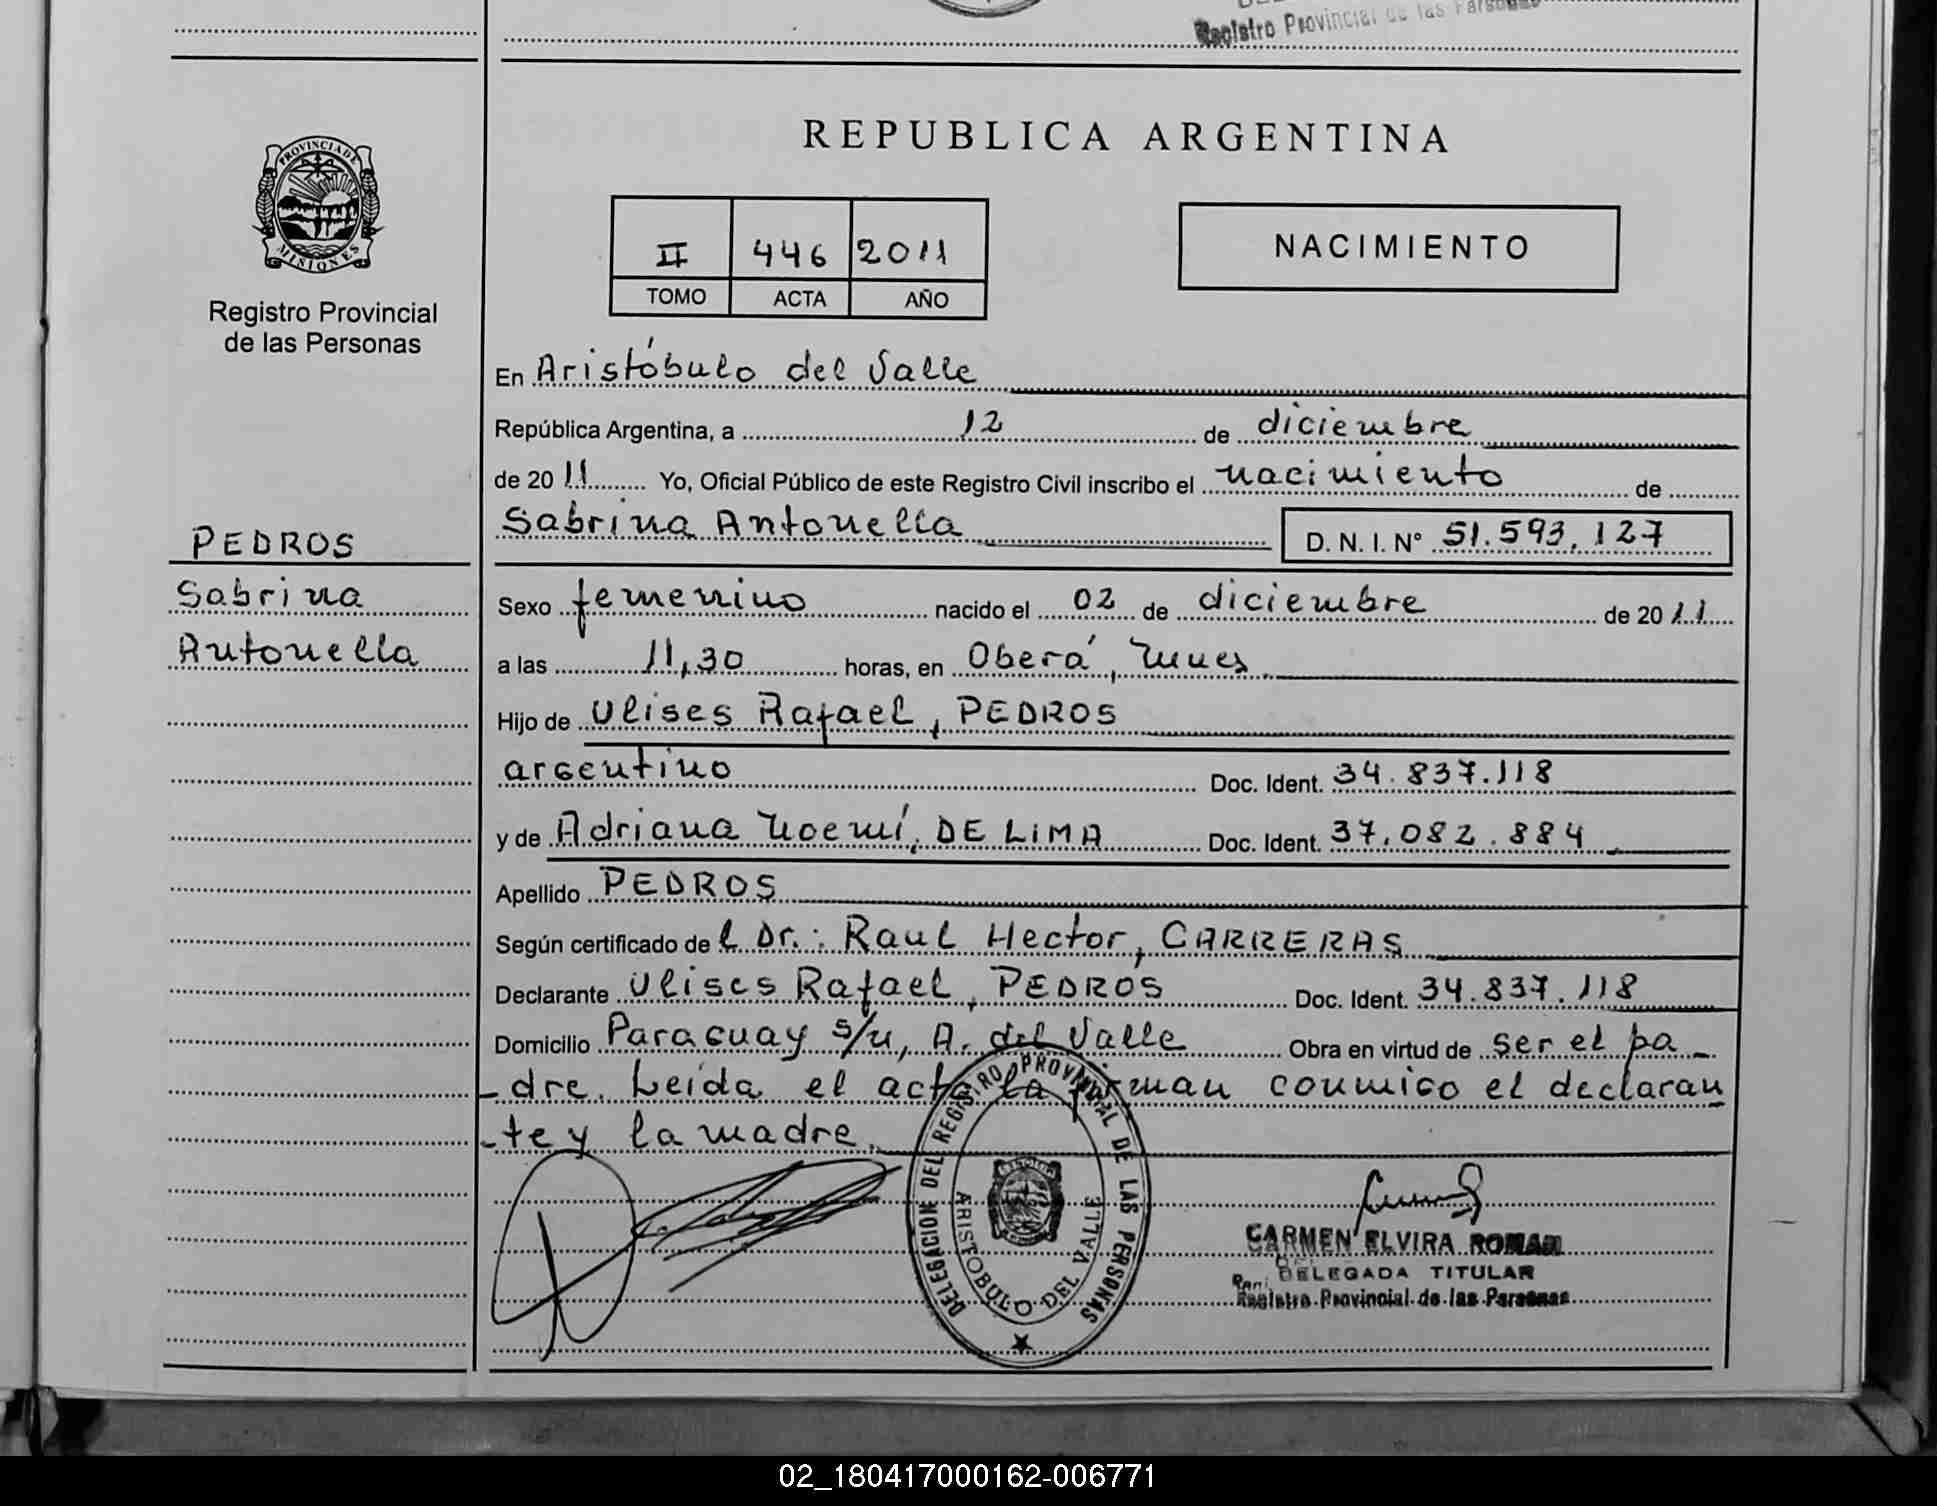 Registro Provincial de las Personas
REPUBLICA ARGENTINA
PROVINCIA DE
MISIONES
Registro Provincial
de las Personas
II 446 2011
TOMO ACTA AÑO
NACIMIENTO
En Aristóbulo del Valle
República Argentina, a 12 de diciembre
de 2011 Yo, Oficial Público de este Registro Civil inscribo el nacimiento de
Sabrina Antonella D. N. I. Nº 51.593.127
PEDROS
Sabrina
Antonella
Sexo femenino nacido el 02 de diciembre de 2011
a las 11,30 horas, en Oberá, Mnes
Hijo de Ulises Rafael, PEDROS
argentino Doc. Ident. 34.837.118
y de Adriana Noemí, DE LIMA Doc. Ident. 37.082.884
Apellido PEDROS
Según certificado del Dr.: Raul Hector, CARRERAS
Declarante Ulises Rafael, PEDROS Doc. Ident. 34.837.118
Domicilio Paraguay s/n, A. del Valle Obra en virtud de ser el pa-
-dre. Leída el acta la firman conmigo el declaran
-te y la madre.
DELEGACION DEL REGISTRO PROVINCIAL DE LAS PERSONAS
ARISTOBULO DEL VALLE
CARMEN ELVIRA ROMAN
DELEGADA TITULAR
Registro Provincial de las Personas
02_180417000162-006771